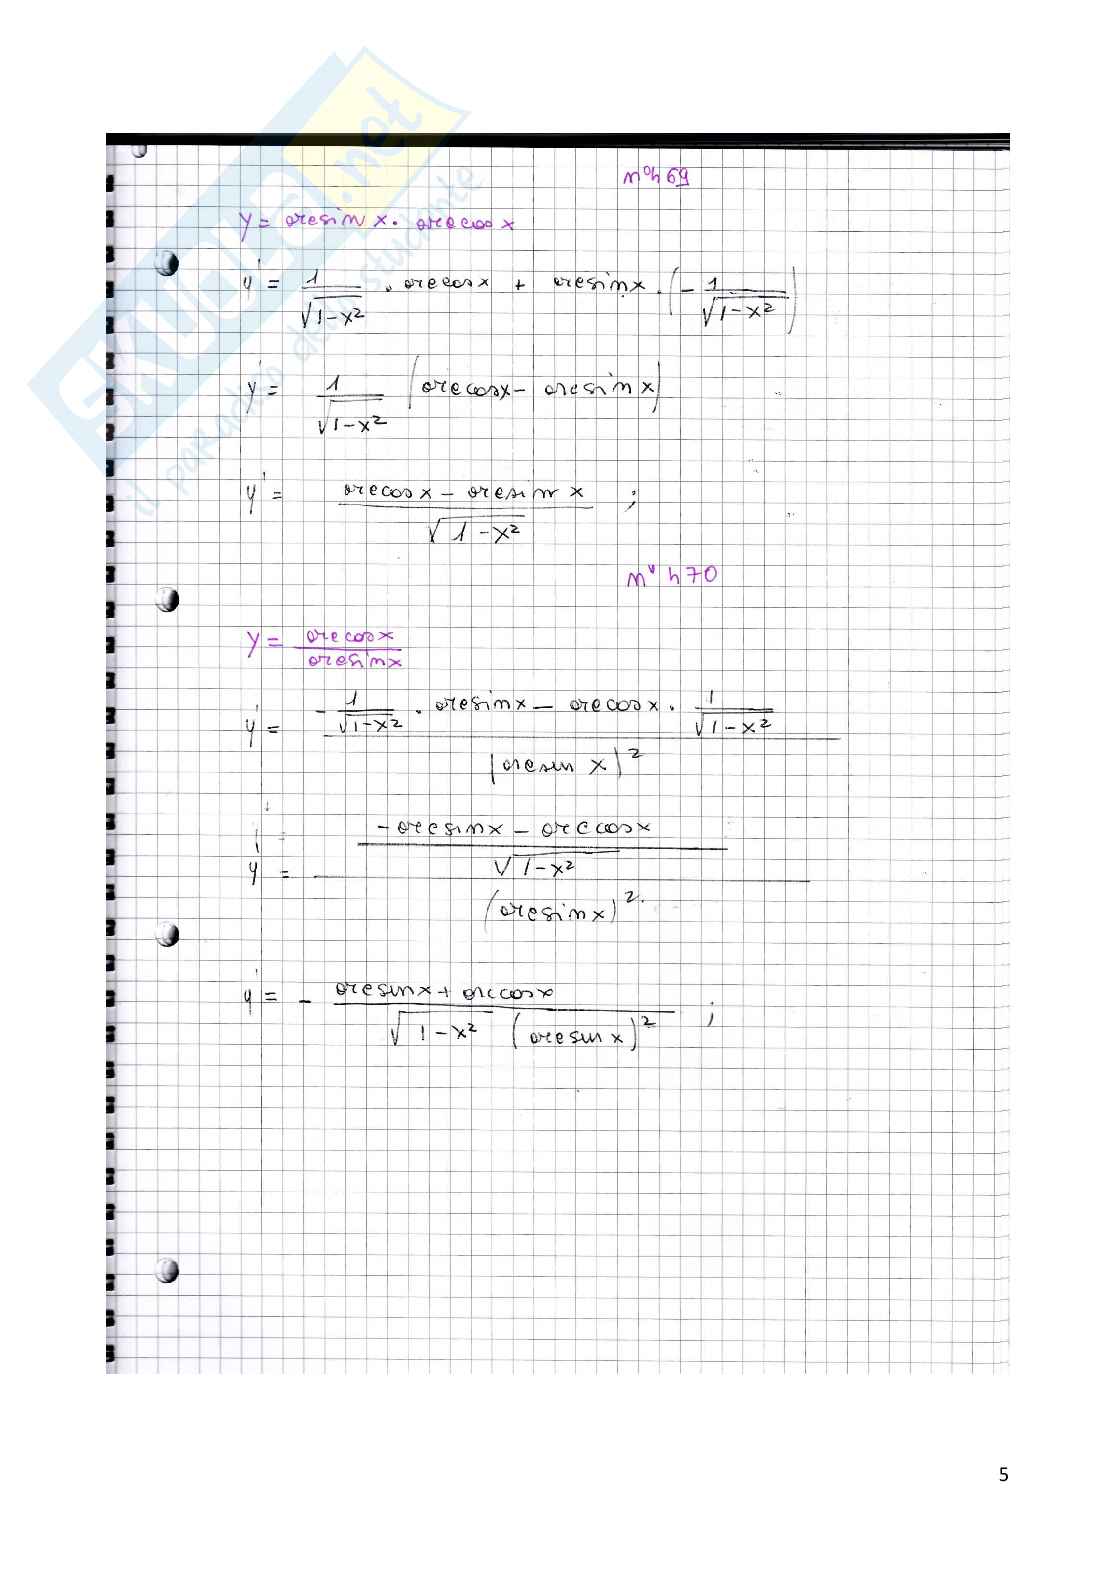 SKUOLA.net
il paradiso dello studente
n° h 69
y = arcsin x · arccos x
y' = 1/√(1-x²) · arccos x + arcsin x · (- 1/√(1-x²))
y' = 1/√(1-x²) (arccos x - arcsin x)
y' = (arccos x - arcsin x)/√(1-x²) ;
n° h 70
y = arccos x / arcsin x
y' = (- 1/√(1-x²) · arcsin x - arccos x · 1/√(1-x²)) / (arcsin x)²
y' = ((- arcsin x - arccos x)/√(1-x²)) / (arcsin x)²
y' = - (arcsin x + arccos x)/(√(1-x²) (arcsin x)²) ;
5